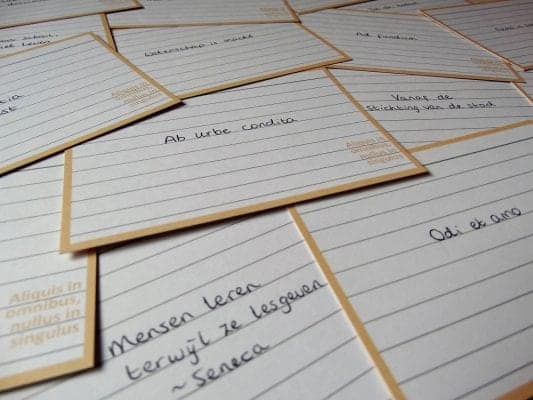 Wetenschap is macht
Ad fundum
Vanaf de
stichting van de stad
Ab urbe condita
Aliquis in
omnibus,
nullus in
singulus
Odi et amo
Aliquis in
omnibus,
nullus in
singulus
Mensen leren
terwijl ze lesgeven
~ Seneca